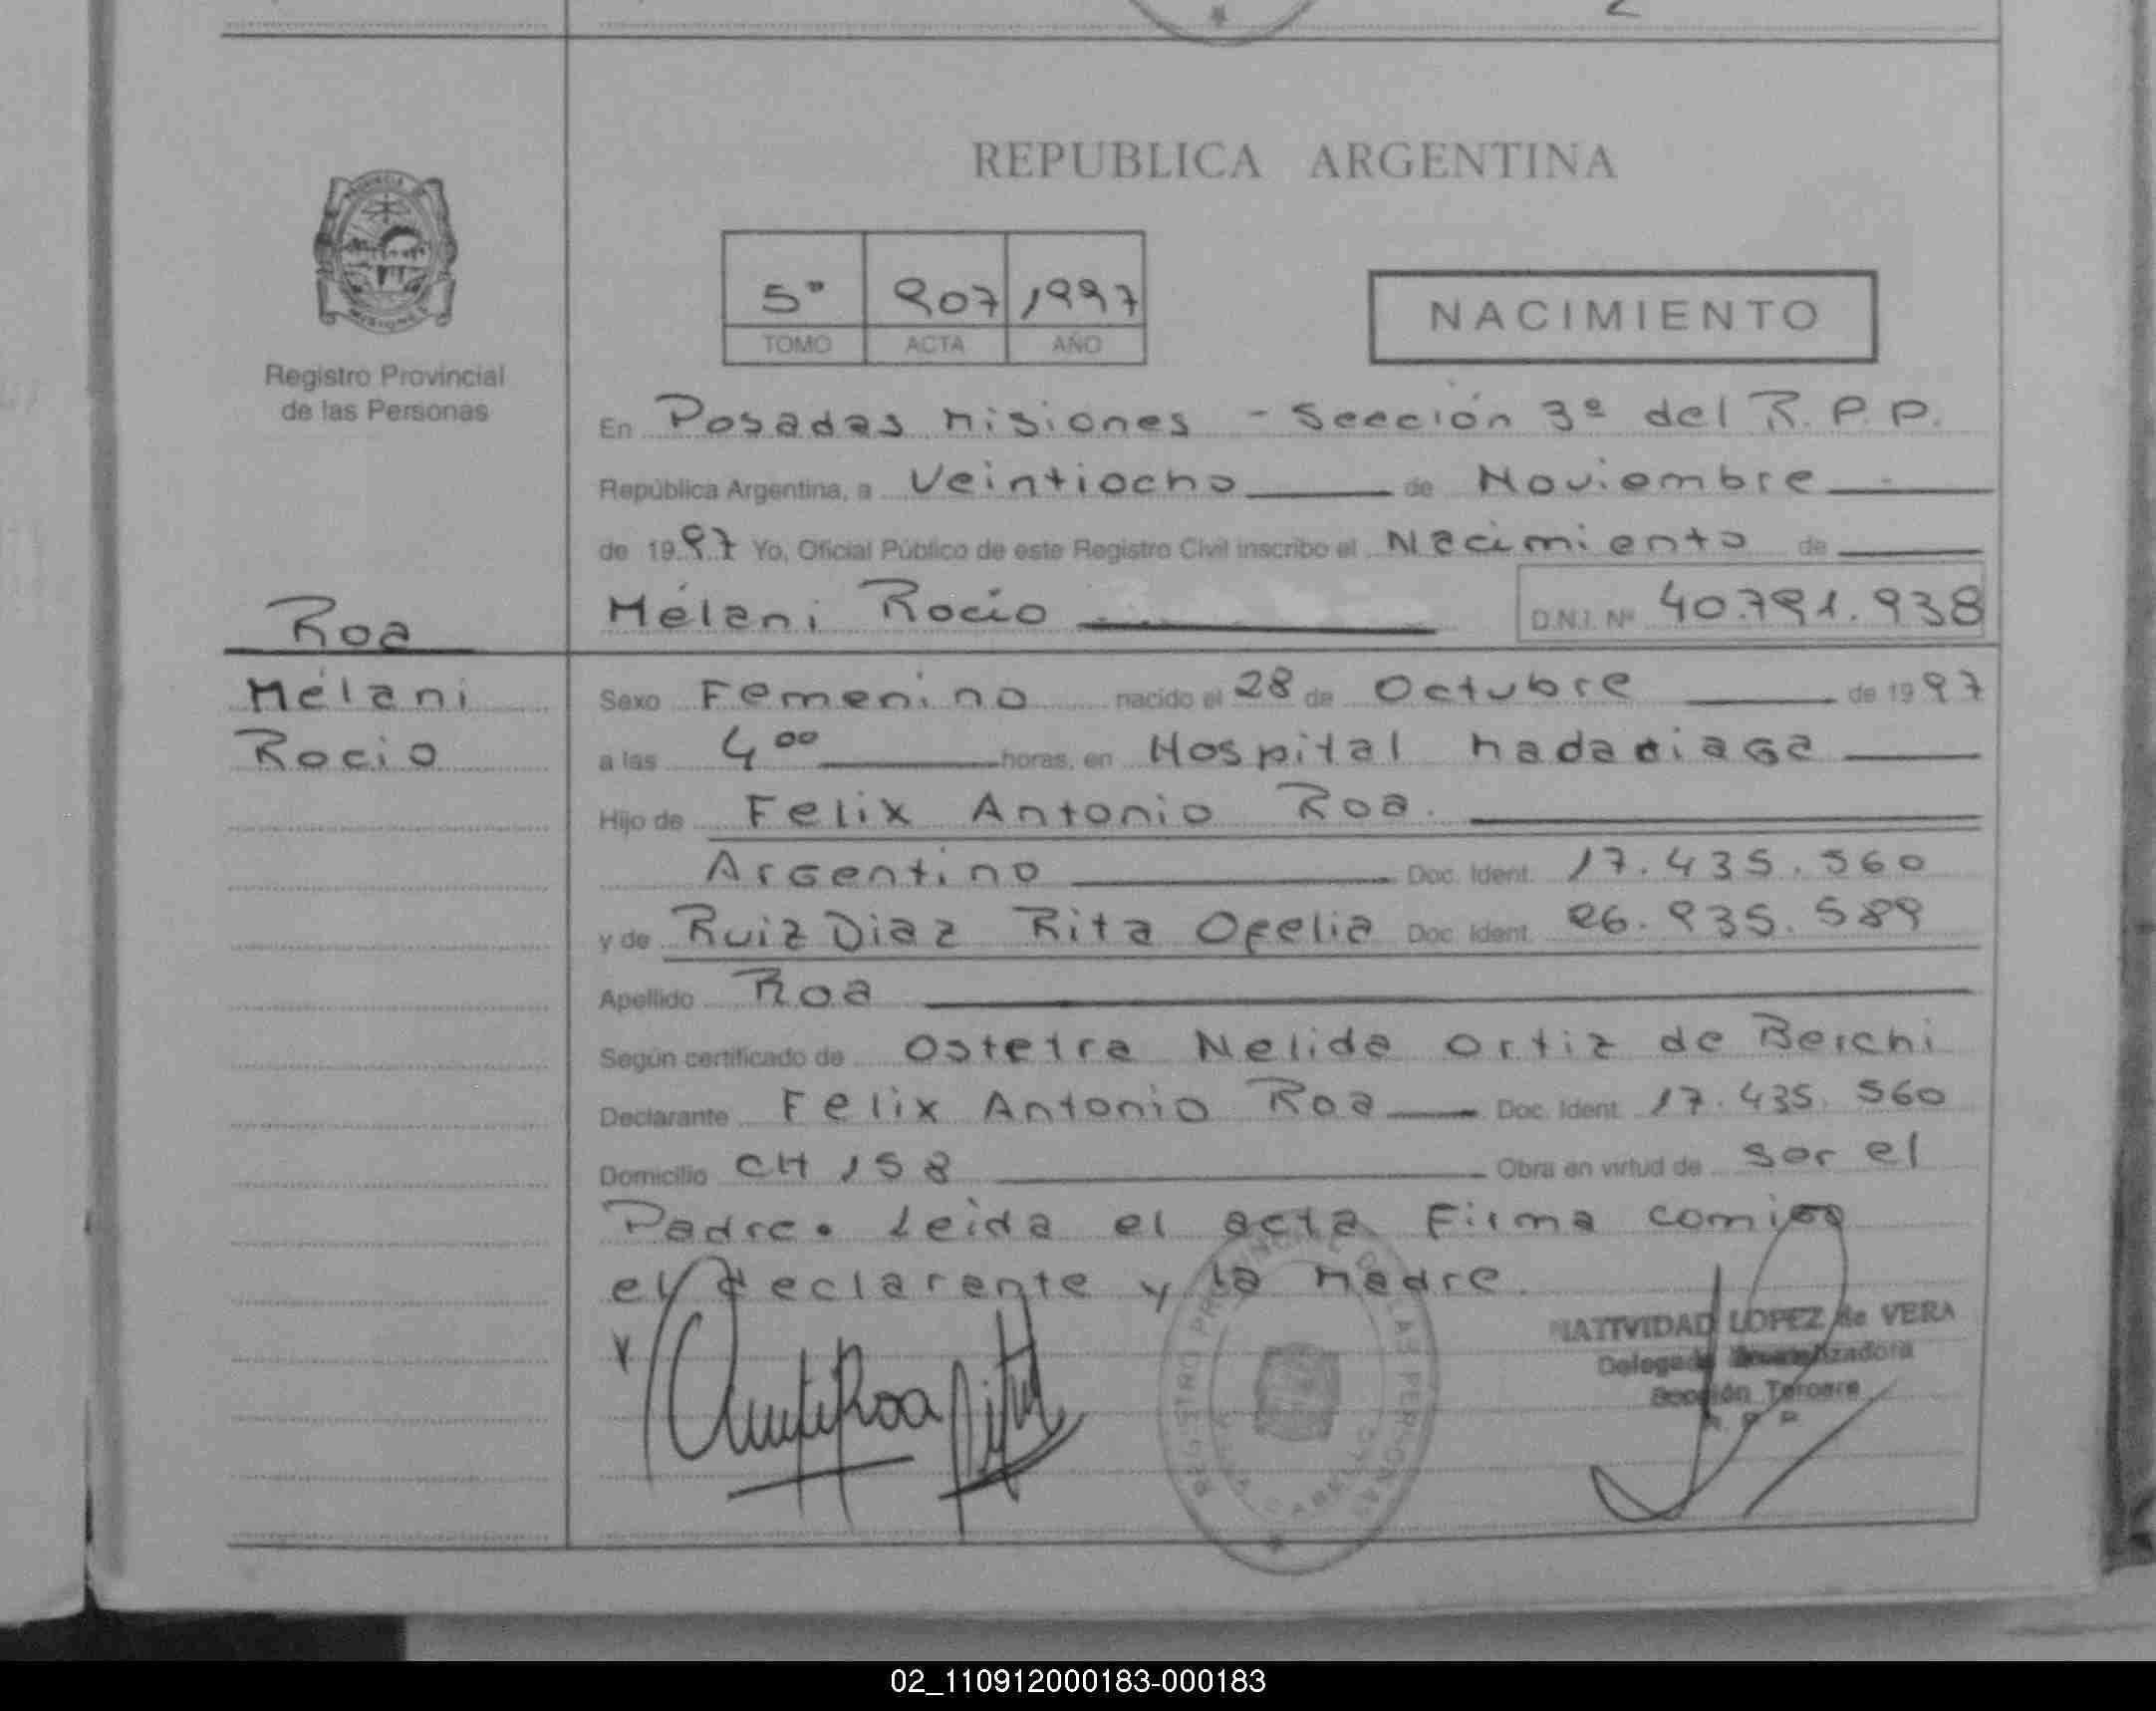 REPUBLICA ARGENTINA
5º 907 1997
TOMO ACTA AÑO
NACIMIENTO
Registro Provincial
de las Personas
En Posadas Misiones - Sección 3º del R.P.P.
República Argentina, a Veintiocho de Noviembre
de 1997 Yo, Oficial Público de este Registro Civil inscribo el Nacimiento de
Roa
Mélani Rocío D.N.I. Nº 40.791.938
Mélani
Rocio
Sexo Femenino nacido el 28 de Octubre de 1997
a las 4 00 horas, en Hospital Madariaga
Hijo de Felix Antonio Roa.
Argentino Doc. Ident. 17.435.560
y de Ruiz Diaz Rita Ofelia Doc. Ident. 26.935.589
Apellido Roa
Según certificado de Ostetra Nelida Ortiz de Berchi
Declarante Felix Antonio Roa Doc. Ident. 17.435.560
Domicilio CH 158 Obra en virtud de Sor el
Padre. Leida el acta Firma comigo
el declarante y la Madre.
REGISTRO PROVINCIAL DE LAS PERSONAS
NATIVIDAD LOPEZ de VERA
Sección Tercera
R. P. P.
02_110912000183-000183